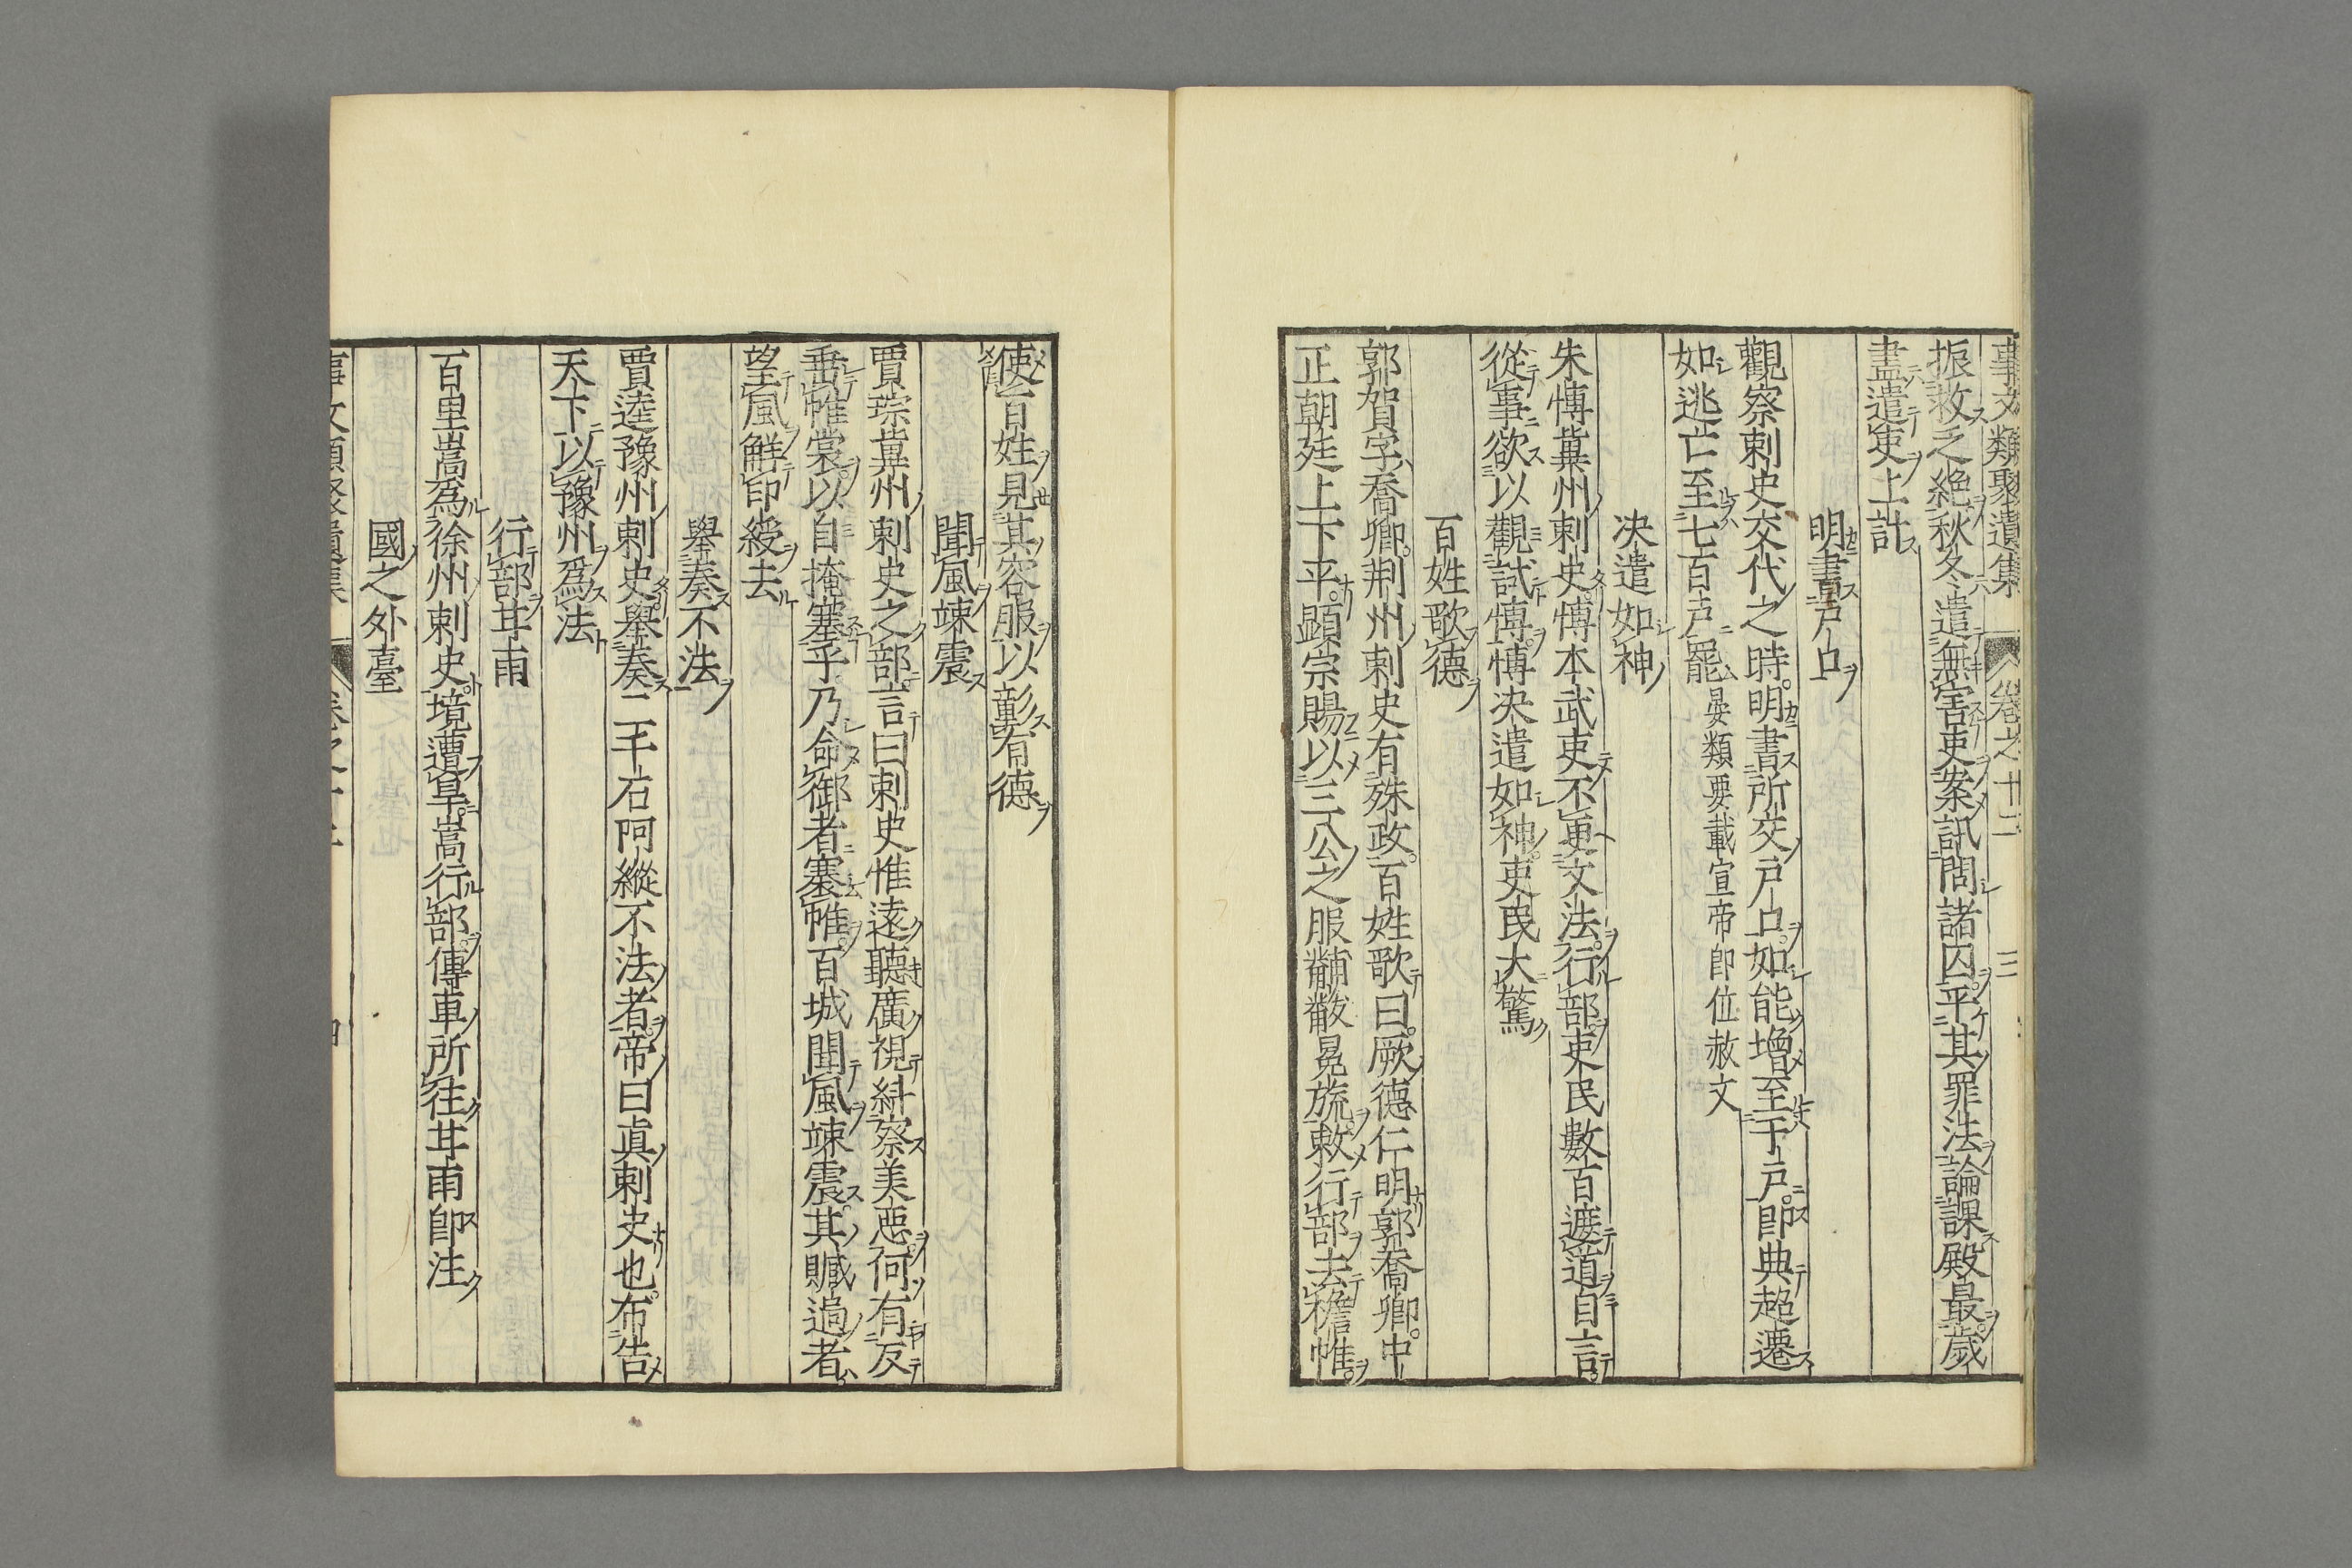 事文類聚遺集 卷之十二 三
振救乏絶秋冬遣無害吏案訊問諸囚平其罪法論課殿最歳
盡遣吏上計
明書戸口
觀察刺史交代之時明書所交戸口如能増至千戸即典超遷
如逃亡至七百戸罷晏類要載宣帝即位赦文
決遣如神
朱愽冀州刺史愽本武吏不更文法行部吏民數百遮道自言
從事欲以觀試愽愽決遣如神吏民大驚
百姓歌德
郭賀字喬卿荆州刺史有殊政百姓歌曰厥德仁明郭喬卿中
正朝廷上下平顯宗賜以三公之服黼黻冕旒敕行部去襜帷
使百姓見其容服以彰有德
聞風竦震
賈琮冀州刺史之部言曰刺史惟遠聽廣視糾察美惡何有反
垂帷裳以自掩塞乎乃命御者褰帷百城聞風竦震其贓過者
望風解印綬去
舉奏不法
賈逵豫州刺史舉奏二千石阿縱不法者帝曰眞刺史也布告
天下以豫州爲法
行部甘雨
百里嵩爲徐州刺史境遭旱嵩行部傳車所往甘雨即注
國之外臺